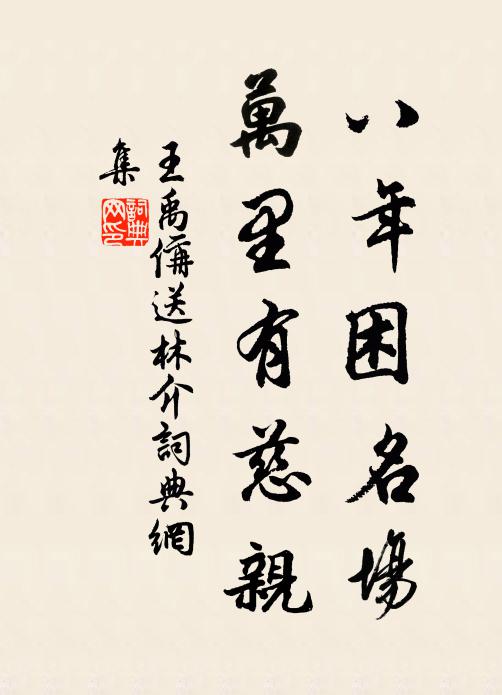 八年困名場
萬里有慈親
王禹偁送林介詞典網
集
詞典
网印